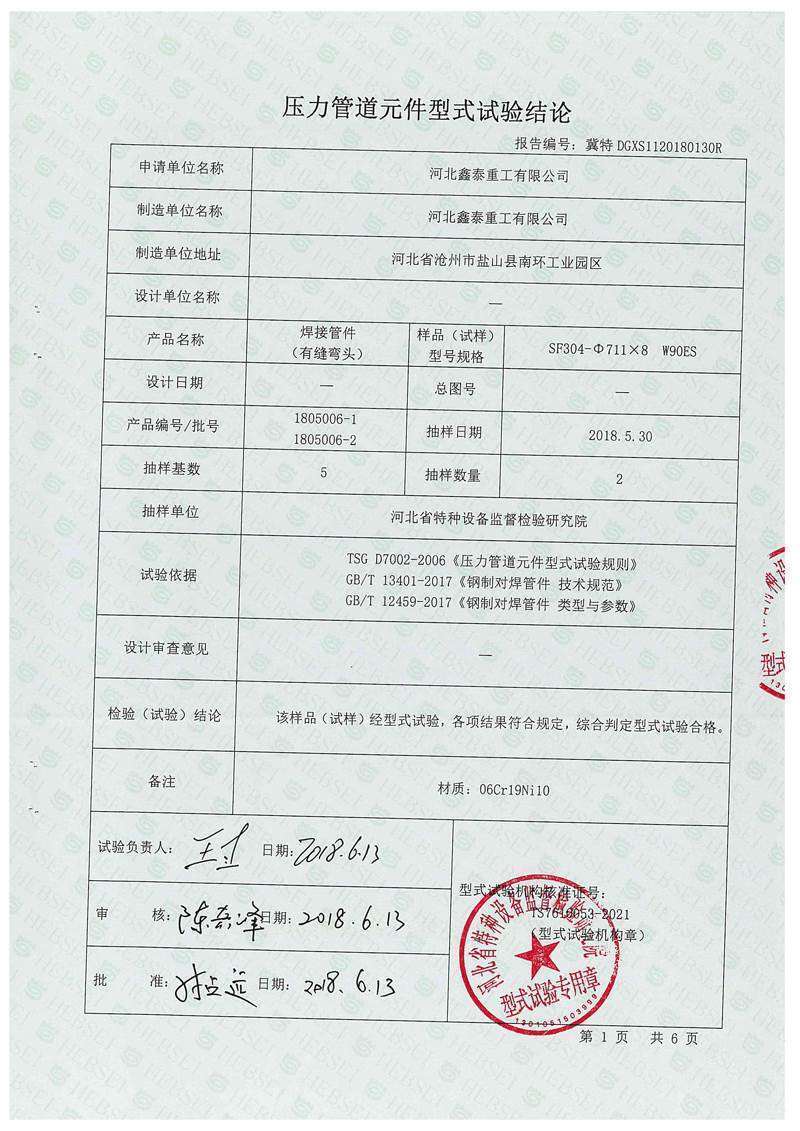 压力管道元件型式试验结论
报告编号：冀特 DGXS1120180130R
申请单位名称 河北鑫泰重工有限公司
制造单位名称 河北鑫泰重工有限公司
制造单位地址 河北省沧州市盐山县南环工业园区
设计单位名称 —
产品名称 焊接管件（有缝弯头） 样品（试样）型号规格 SF304-Φ711×8 W90ES
设计日期 — 总图号 —
产品编号/批号 1805006-1 1805006-2 抽样日期 2018.5.30
抽样基数 5 抽样数量 2
抽样单位 河北省特种设备监督检验研究院
试验依据 TSG D7002-2006《压力管道元件型式试验规则》
GB/T 13401-2017《钢制对焊管件 技术规范》
GB/T 12459-2017《钢制对焊管件 类型与参数》
设计审查意见 —
检验（试验）结论 该样品（试样）经型式试验，各项结果符合规定，综合判定型式试验合格。
备注 材质：06Cr19Ni10
试验负责人： 日期：2018.6.13
审 核： 日期：2018.6.13
批 准： 日期：2018.6.13
型式试验机构核准证号：
TS7610053-2021
（型式试验机构章）
河北省特种设备监督检验研究院
型式试验专用章
1301051503999
第 1 页 共 6 页
HEBSEI